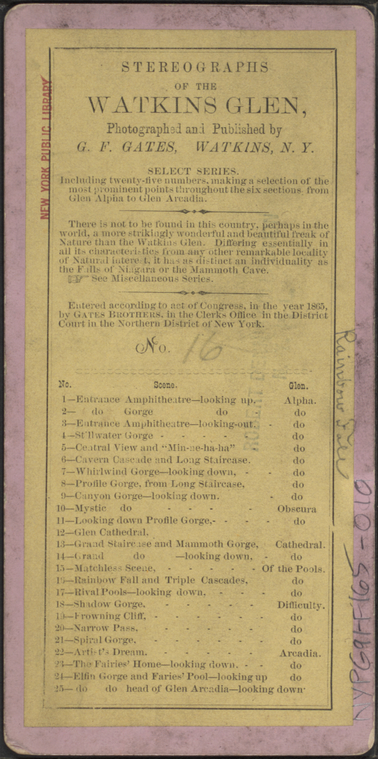 STEREOGRAPHS
OF THE
WATKINS GLEN,
Photographed and Published by
G. F. GATES, WATKINS, N. Y.
SELECT SERIES.
Including twenty-five numbers, making a selection of the
most prominent points throughout the six sections from
Glen Alpha to Glen Arcadia.
There is not to be found in this country, perhaps in the
world, a more strikingly wonderful and beautiful freak of
Nature than the Watkins Glen. Differing essentially in
all its characteristics from any other remarkable locality
of Natural interest, it has as distinct an individuality as
the Falls of Niagara or the Mammoth Cave.
See Miscellaneous Series.
Entered according to act of Congress, in the year 1865,
by GATES BROTHERS, in the Clerks Office in the District
Court in the Northern District of New York.
No. 16
No. Scene. Glen.
1—Entrance Amphitheatre—looking up, Alpha.
2— do Gorge do do
3—Entrance Amphitheatre—looking out - do
4—Stillwater Gorge - - - - - do
5—Central View and "Min-ne-ha-ha" do
6—Cavern Cascade and Long Staircase. do
7—Whirlwind Gorge—looking down, - - do
8—Profile Gorge, from Long Staircase, do
9—Canyon Gorge—looking down. - - do
10—Mystic do - - - - - Obscura
11—Looking down Profile Gorge,- - - - do
12—Glen Cathedral,
13—Grand Staircase and Mammoth Gorge, Cathedral.
14—Grand do —looking down, - do
15—Matchless Scene, - - - - - Of the Pools.
16—Rainbow Fall and Triple Cascades, do
17—Rival Pools—looking down, - - - do
18—Shadow Gorge, - - - - - Difficulty.
19—Frowning Cliff, - - - - - do
20—Narrow Pass, - - - - - do
21—Spiral Gorge, - - - - - do
22—Artist's Dream, - - - - Arcadia.
23—The Fairies' Home—looking down. - - do
24—Elfin Gorge and Faries' Pool—looking up do
25— do do head of Glen Arcadia—looking down
NEW YORK PUBLIC LIBRARY
ROBERT
Rainbow Falls
NYPG91-F165-010